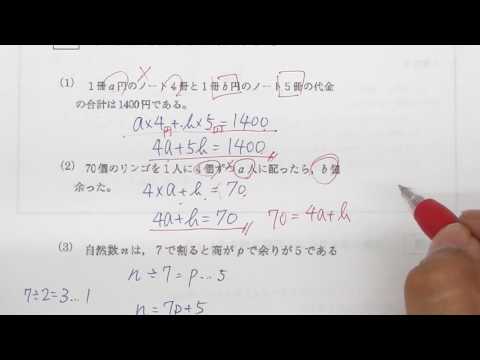 (1) 1冊a円のノート4冊と1冊b円のノート5冊の代金
の合計は1400円である。
a×4円+b×5円=1400
4a+5b=1400
(2) 70個のリンゴを1人に4個ずつa人に配ったら,b個
余った。
4×a+b=70
4a+b=70 70=4a+b
(3) 自然数nは,7で割ると商がpで余りが5である
n÷7=p…5
7÷2=3…1
n=7p+5